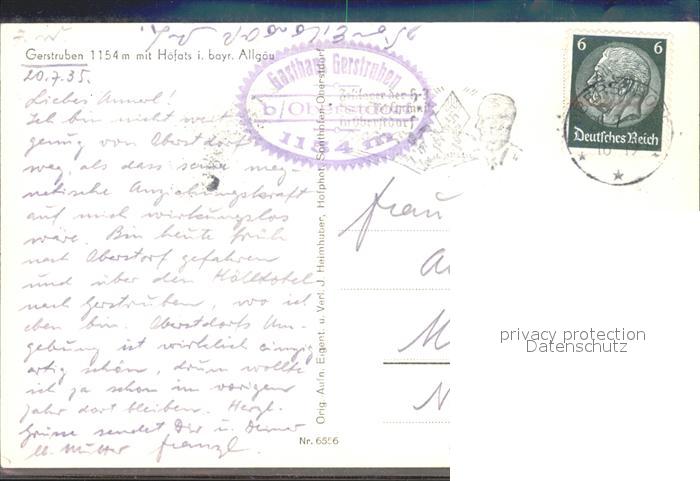 Gerstruben 1154 m mit Höfats i. bayr. Allgäu
20.7.35.
Liebes Annerl!
Ich bin nicht weit
genug von Oberstdorf
weg, als dass seine mag-
netische Anziehungskraft
auf mich wirkungslos
wäre. Bin heute früh
nach Oberstorf gefahren
und über den Hölltobel
nach Gerstruben, wo ich
eben bin. Oberstdorfs Um-
gebung ist wirklich einzig
artig schön, drum wollte
ich ja schon im vorigen
Jahr dort bleiben. Herzl.
Grüsse sendet Dir u. Deiner
lb. Mutter Franzl.
Gasthaus Gerstruben
b/Oberstdorf
1154 m
Zeltlager der HJ
in Oberstdorf
Orig. Aufn. Eigent. u. Verl. J. Heimhuber, Hofphot. Sonthofen-Oberstdorf
Nr. 6556
6 6
Deutsches Reich
Frau
M
N
privacy protection
Datenschutz